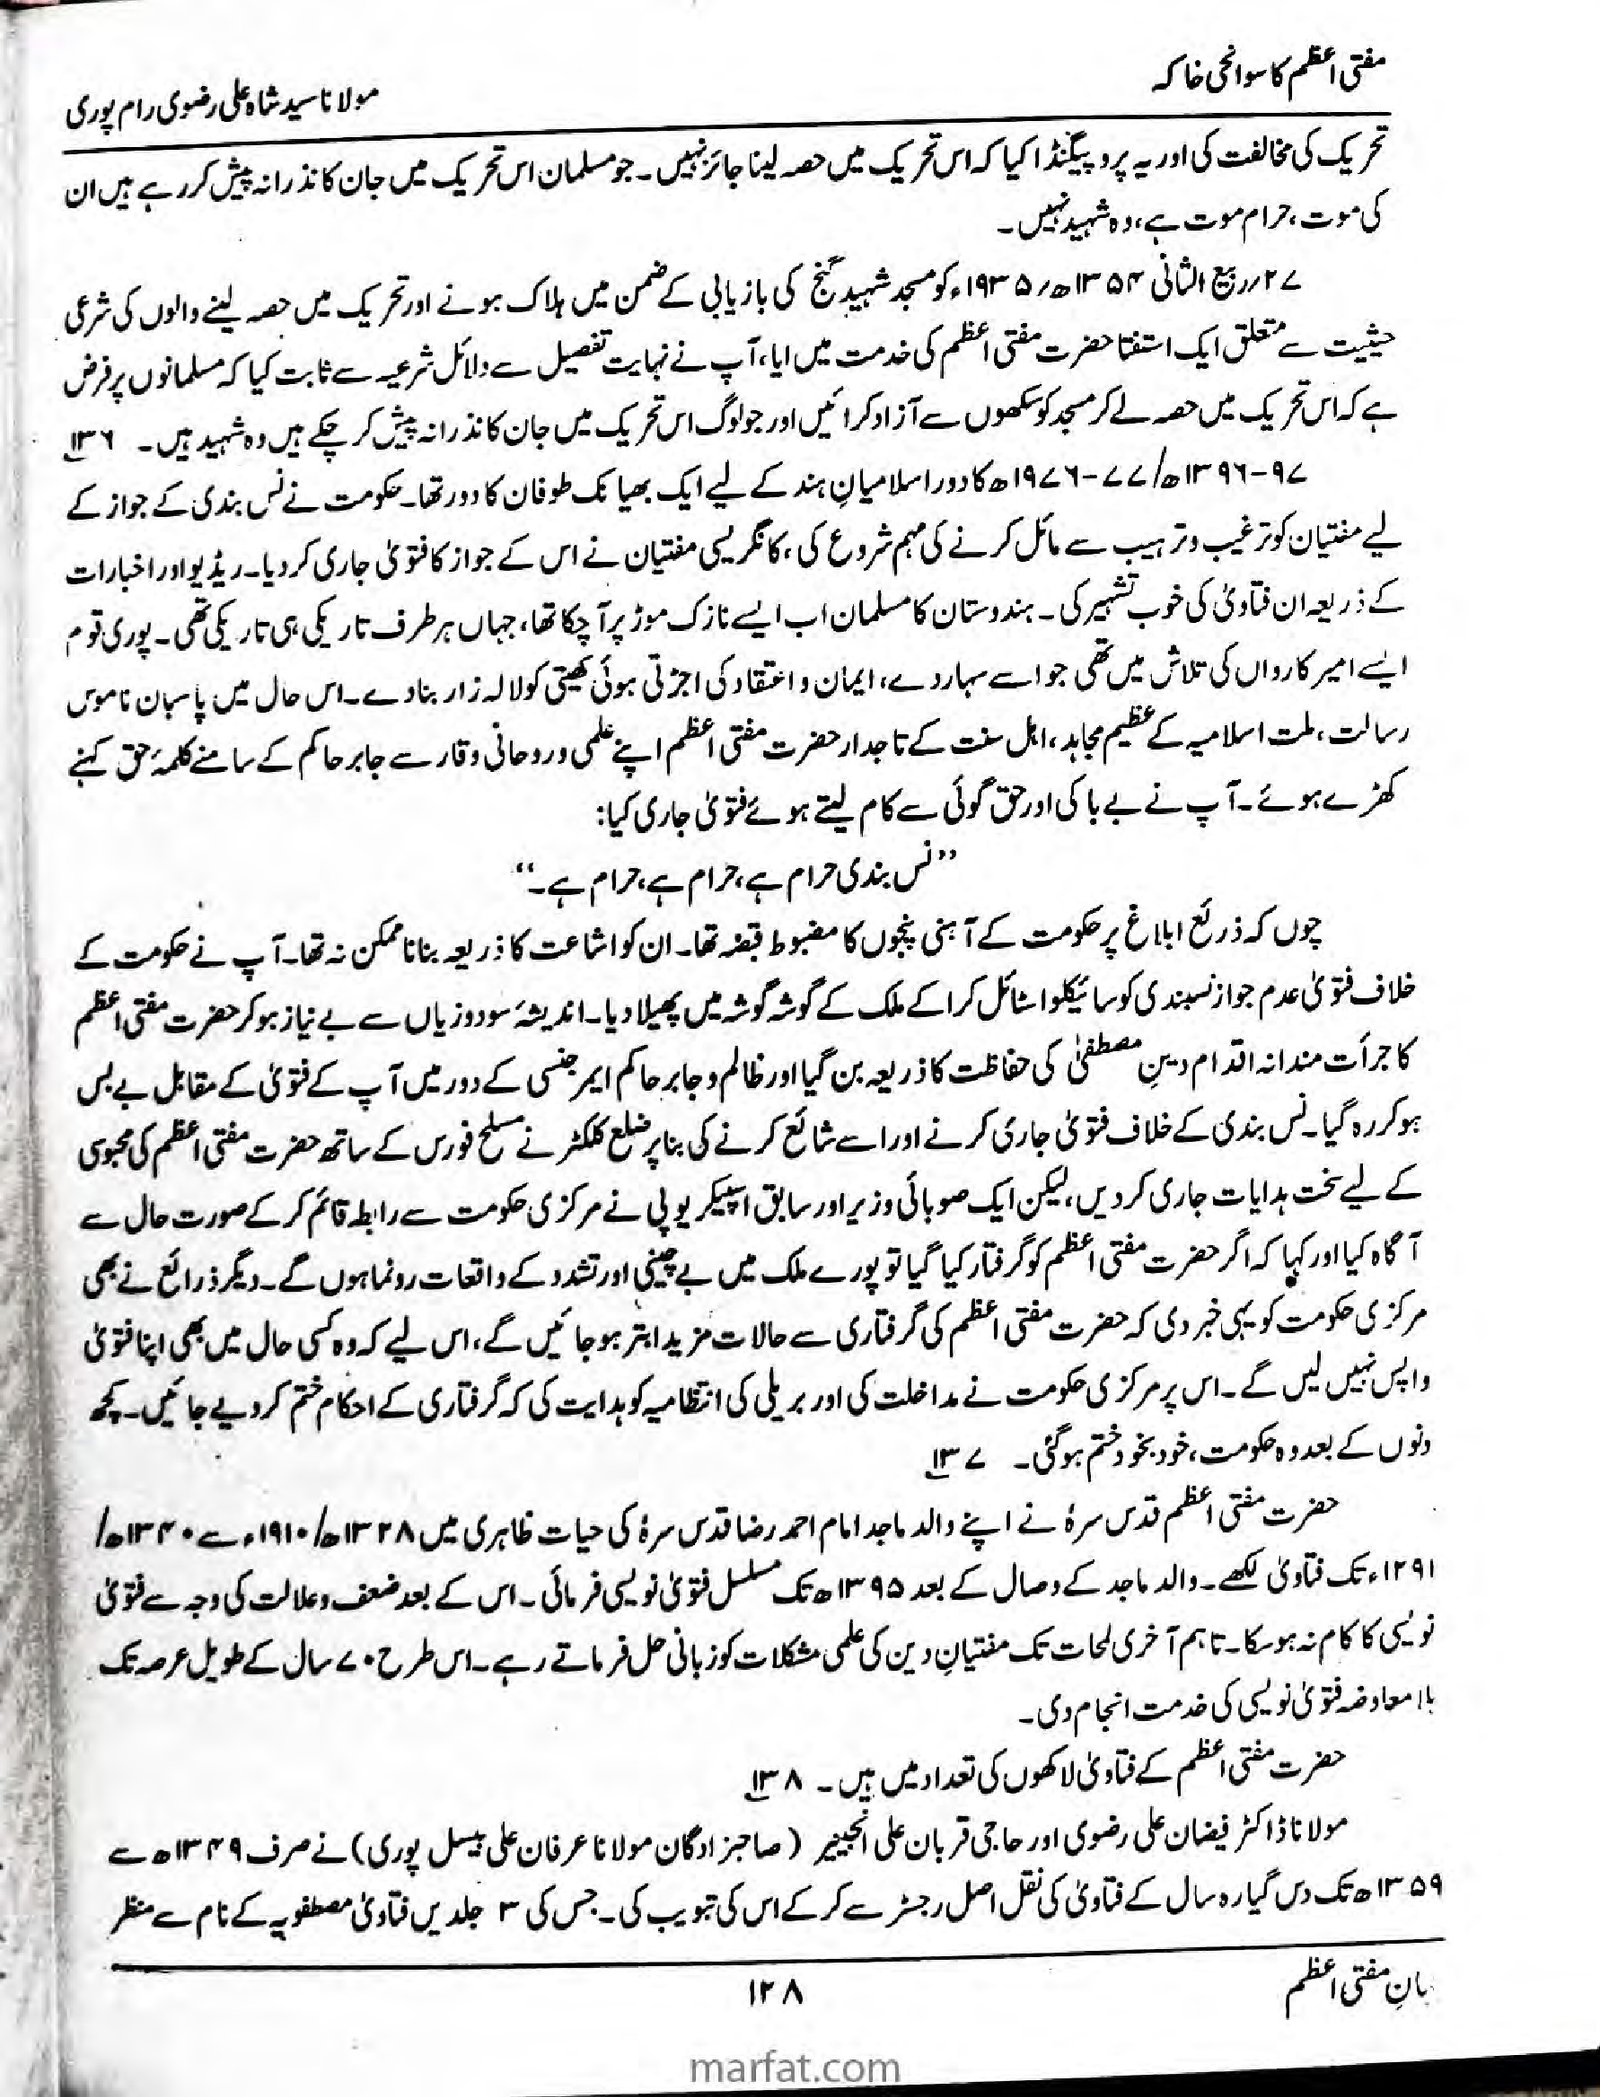 مفتی اعظم کا سوانحی خاکہ
مولانا سید شاہ علی رضوی رام پوری
تحریک کی مخالفت کی اور یہ پروپیگنڈا کیا کہ اس تحریک میں حصہ لینا جائز نہیں۔ جو مسلمان اس تحریک میں جان کا نذرانہ پیش کررہے ہیں ان
کی موت، حرام موت ہے، وہ شہید نہیں۔
۲۷؍ربیع الثانی ۱۳۵۴ھ؍۱۹۳۵ء کو مسجد شہید گنج کی بازیابی کے ضمن میں ہلاک ہونے اور تحریک میں حصہ لینے والوں کی شرعی
حیثیت سے متعلق ایک استفتا حضرت مفتی اعظم کی خدمت میں ایا، آپ نے نہایت تفصیل سے دلائل شرعیہ سے ثابت کیا کہ مسلمانوں پر فرض
ہے کہ اس تحریک میں حصہ لے کر مسجد کو سکھوں سے آزاد کرائیں اور جو لوگ اس تحریک میں جان کا نذرانہ پیش کر چکے ہیں وہ شہید ہیں۔ ۱۳۶
۹۷-۱۳۹۶ھ/۷۷-۱۹۷۶ھ کا دور اسلامیانِ ہند کے لیے ایک بھیانک طوفان کا دور تھا۔ حکومت نے نس بندی کے جواز کے
لیے مفتیان کو ترغیب و ترہیب سے مائل کرنے کی مہم شروع کی، کانگریسی مفتیان نے اس کے جواز کا فتویٰ جاری کردیا۔ ریڈیو اور اخبارات
کے ذریعہ ان فتاویٰ کی خوب تشہیر کی۔ ہندوستان کا مسلمان اب ایسے نازک موڑ پر آچکا تھا، جہاں ہر طرف تاریکی ہی تاریکی تھی۔ پوری قوم
ایسے امیر کارواں کی تلاش میں تھی جو اسے سہارا دے، ایمان و اعتقاد کی اجڑتی ہوئی کھیتی کو لالہ زار بنادے۔ اس حال میں پاسبان ناموس
رسالت، ملت اسلامیہ کے عظیم مجاہد، اہل سنت کے تاجدار حضرت مفتی اعظم اپنے علمی و روحانی وقار سے جابر حاکم کے سامنے کلمۂ حق کہنے
کھڑے ہوئے۔ آپ نے بے باکی اور حق گوئی سے کام لیتے ہوئے فتویٰ جاری کیا:
”نس بندی حرام ہے، حرام ہے، حرام ہے۔“
چوں کہ ذرائع ابلاغ پر حکومت کے آہنی پنجوں کا مضبوط قبضہ تھا۔ ان کو اشاعت کا ذریعہ بنانا ممکن نہ تھا۔ آپ نے حکومت کے
خلاف فتویٰ عدم جواز نسبندی کو سائیکلو اسٹائل کرا کے ملک کے گوشہ گوشہ میں پھیلا دیا۔ اندیشۂ سود وزیاں سے بے نیاز ہوکر حضرت مفتی اعظم
کا جرأت مندانہ اقدام دینِ مصطفیٰ کی حفاظت کا ذریعہ بن گیا اور ظالم و جابر حاکم ایمرجنسی کے دور میں آپ کے فتویٰ کے مقابل بے بس
ہوکر رہ گیا۔ نس بندی کے خلاف فتویٰ جاری کرنے اور اسے شائع کرنے کی بنا پر ضلع کلکٹر نے مسلح فورس کے ساتھ حضرت مفتی اعظم کی محبوسی
کے لیے سخت ہدایات جاری کردیں، لیکن ایک صوبائی وزیر اور سابق اسپیکر یوپی نے مرکزی حکومت سے رابطہ قائم کرکے صورت حال سے
آگاہ کیا اور کہا کہ اگر حضرت مفتی اعظم کو گرفتار کیا گیا تو پورے ملک میں بے چینی اور تشدد کے واقعات رونما ہوں گے۔ دیگر ذرائع نے بھی
مرکزی حکومت کو یہی خبر دی کہ حضرت مفتی اعظم کی گرفتاری سے حالات مزید ابتر ہو جائیں گے، اس لیے کہ وہ کسی حال میں بھی اپنا فتویٰ
واپس نہیں لیں گے۔ اس پر مرکزی حکومت نے مداخلت کی اور بریلی کی انتظامیہ کو ہدایت کی کہ گرفتاری کے احکام ختم کر دیے جائیں۔ کچھ
دنوں کے بعد وہ حکومت، خود بخود ختم ہوگئی۔ ۱۳۷
حضرت مفتی اعظم قدس سرہٗ نے اپنے والد ماجد امام احمد رضا قدس سرہٗ کی حیات ظاہری میں ۱۳۲۸ھ/۱۹۱۰ء سے ۱۳۴۰ھ/
۱۲۹۱ء تک فتاویٰ لکھے۔ والد ماجد کے وصال کے بعد ۱۳۹۵ھ تک مسلسل فتویٰ نویسی فرمائی۔ اس کے بعد ضعف و علالت کی وجہ سے فتویٰ
نویسی کا کام نہ ہوسکا۔ تاہم آخری لمحات تک مفتیانِ دین کی علمی مشکلات کو زبانی حل فرماتے رہے۔ اس طرح ۷۰ سال کے طویل عرصہ تک
بلا معاوضہ فتویٰ نویسی کی خدمت انجام دی۔
حضرت مفتی اعظم کے فتاویٰ لاکھوں کی تعداد میں ہیں۔ ۱۳۸
مولانا ڈاکٹر فیضان علی رضوی اور حاجی قربان علی انجینیر (صاحبزادگان مولانا عرفان علی بیسل پوری) نے صرف ۱۳۴۹ھ سے
۱۳۵۹ھ تک دس گیارہ سال کے فتاویٰ کی نقل اصل رجسٹر سے کرکے اس کی تبویب کی۔ جس کی ۳ جلدیں فتاویٰ مصطفویہ کے نام سے منظر
بانِ مفتی اعظم
۱۲۸
marfat.com